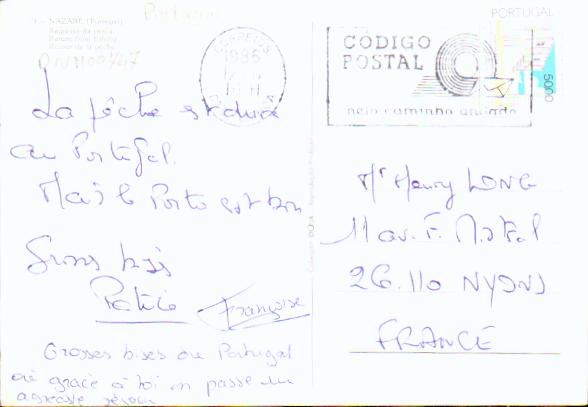 NAZARÉ (Portugal)
Regresso da pesca
Return from fishing
Retour de la pêche
Portugal
PORTUGAL
CORREIOS
1986
CÓDIGO
POSTAL
pelo caminho
5000
La pêche est
au Portugal.
Mais le Porto est bon
Gros
Patricia
Françoise
Grosses bises du Portugal
où grâce à toi on passe un
agréable séjour
Mr Henry LONG
11 av. F. Mistral
26.110 NYONS
FRANCE